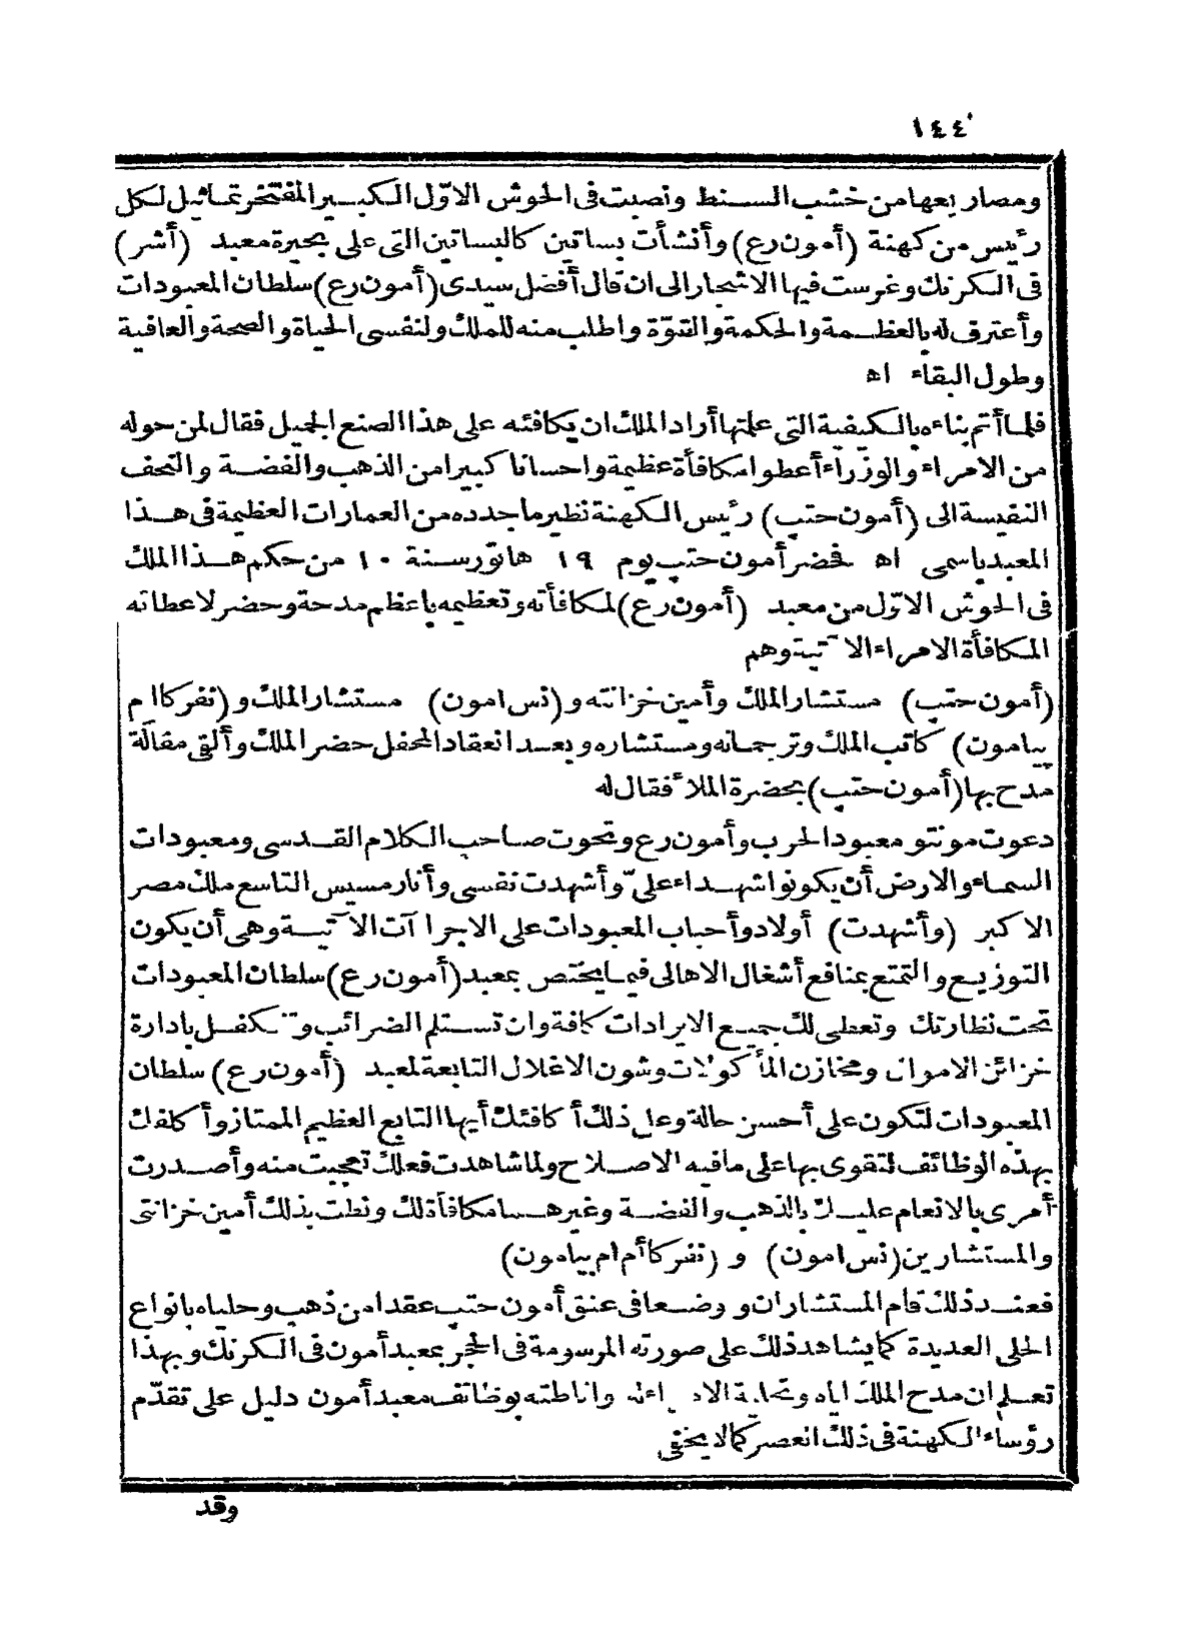 ١٤٤
ومصاريعها من خشب السنط ونصبت فى الحوش الاوّل الكبير المفتخر تماثيل لكل
رئيس من كهنة (أمون رع) وأنشأت بساتين كالبساتين التى على بحيرة معبد (أشر)
فى الكرنك وغرست فيها الاشجار الى ان قال أفضل سيدى (أمون رع) سلطان المعبودات
وأعترف له بالعظمة والحكمة والقوّة واطلب منه للملك ولنفسى الحياة والصحة والعافية
وطول البقاء اه
فلما أتم بناءه بالكيفية التى علمتها أراد الملك ان يكافئه على هذا الصنع الجميل فقال لمن حوله
من الامراء والوزراء أعطوا مكافأة عظيمة واحسانا كبيرا من الذهب والفضة والتحف
النفيسة الى (أمون حتب) رئيس الكهنة نظير ما جدده من العمارات العظيمة فى هذا
المعبد باسمى اه فحضر أمون حتب يوم ١٩ هاتور سنة ١٠ من حكم هذا الملك
فى الحوش الاوّل من معبد (أمون رع) لمكافأته وتعظيمه باعظم مدحة وحضر لاعطائه
المكافأة الامراء الآتية وهم
(أمون حتب) مستشار الملك وأمين خزانته و (نس امون) مستشار الملك و (نفر كا ام
بيامون) كاتب الملك وترجمانه ومستشاره وبعد انعقاد المحفل حضر الملك وألقى مقالة
مدح بها (أمون حتب) بحضرة الملأ فقال له
دعوت مونتو معبود الحرب وأمون رع وتحوت صاحب الكلام القدسى ومعبودات
السماء والارض أن يكونوا شهداء علىّ وأشهدت نفسى وأنا رمسيس التاسع ملك مصر
الاكبر (وأشهدت) أولاد وأحباب المعبودات على الاجراآت الآتية وهى أن يكون
التوزيع والتمتع بمنافع أشغال الاهالى فيما يختص بمعبد (أمون رع) سلطان المعبودات
تحت نظارتك وتعطى لك جميع الايرادات كافة وان تستلم الضرائب وتتكفل بادارة
خزائن الاموال ومخازن المأكولات وشون الاغلال التابعة لمعبد (أمون رع) سلطان
المعبودات لتكون على أحسن حالة وعلى ذلك أكافئك أيها التابع العظيم الممتاز وأكلفك
بهذه الوظائف لتقوى بها على ما فيه الاصلاح ولما شاهدت فعلك تعجبت منه وأصدرت
أمرى بالانعام عليك بالذهب والفضة وغيرهما مكافأة لك ونطت بذلك أمين خزانتى
والمستشارين (نس امون) و (نفر كا أم ام بيامون)
فعند ذلك قام المستشاران ووضعا فى عنق أمون حتب عقدا من ذهب وحلياه بانواع
الحلى العديدة كما يشاهد ذلك على صورته المرسومة فى الحجر بمعبد أمون فى الكرنك وبهذا
تعلم ان مدح الملك اياه واناطته بوظائف معبد أمون دليل على تقدّم
رؤساء الكهنة فى ذلك العصر كما لا يخفى
وقد